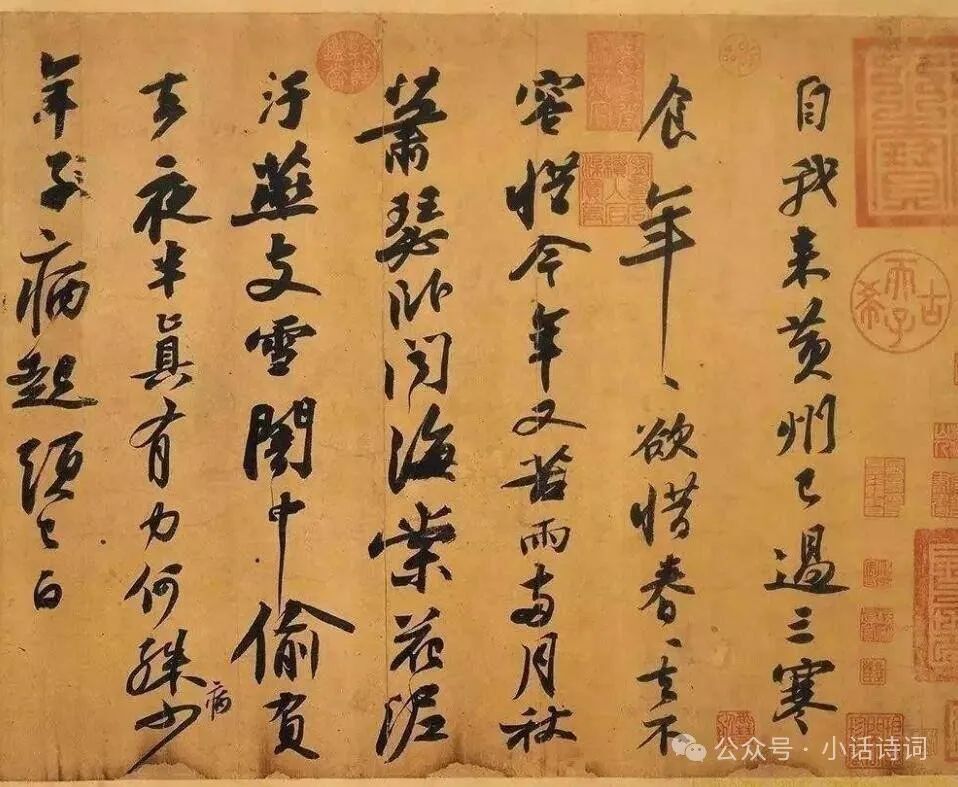 自我来黄州已過三寒
食年、欲惜春、去不
容惜今年又苦雨两月秋
蕭瑟卧聞海棠花泥
汙燕支雪闇中偷負
去夜半真有力何殊少
病
年子病起頭已白
古希天子
公众号·小话诗词